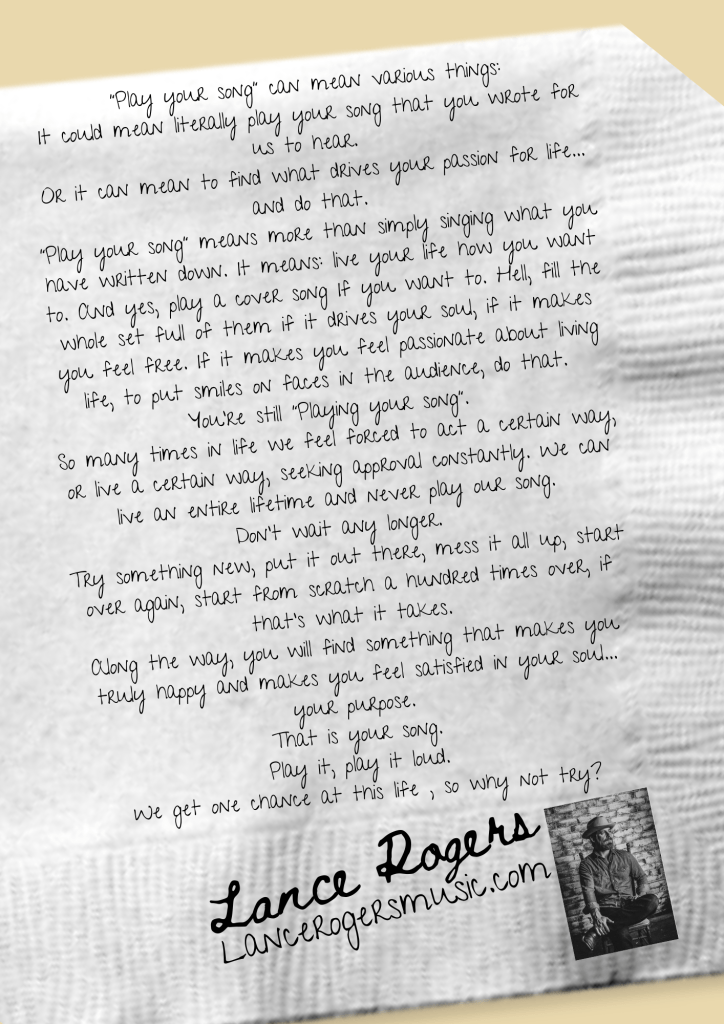 "Play your song" can mean various things:
It could mean literally play your song that you wrote for
us to hear.
Or it can mean to find what drives your passion for life...
and do that.
"Play your song" means more than simply singing what you
have written down. It means: live your life how you want
to. And yes, play a cover song if you want to. Hell, fill the
whole set full of them if it drives your soul, if it makes
you feel free. If it makes you feel passionate about living
life, to put smiles on faces in the audience, do that.
You're still "Playing your song".
So many times in life we feel forced to act a certain way,
or live a certain way, seeking approval constantly. We can
live an entire lifetime and never play our song.
Don't wait any longer.
Try something new, put it out there, mess it all up, start
over again, start from scratch a hundred times over, if
that's what it takes.
Along the way, you will find something that makes you
truly happy and makes you feel satisfied in your soul...
your purpose.
That is your song.
Play it, play it loud.
We get one chance at this life , so why not try?
Lance Rogers
LanceRogersmusic.com